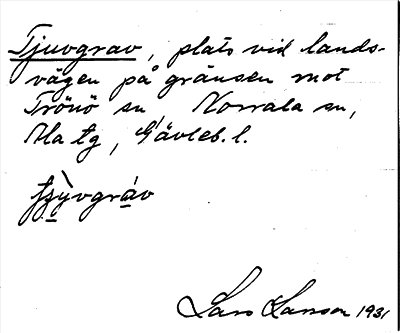 Tjuvgrav, plats vid lands-
vägen på gränsen mot
Trönö sn Norrala sn,
Ala tg, Gävleb. l.
tsỳ̱vgra̱v
Lars Larsson 1931